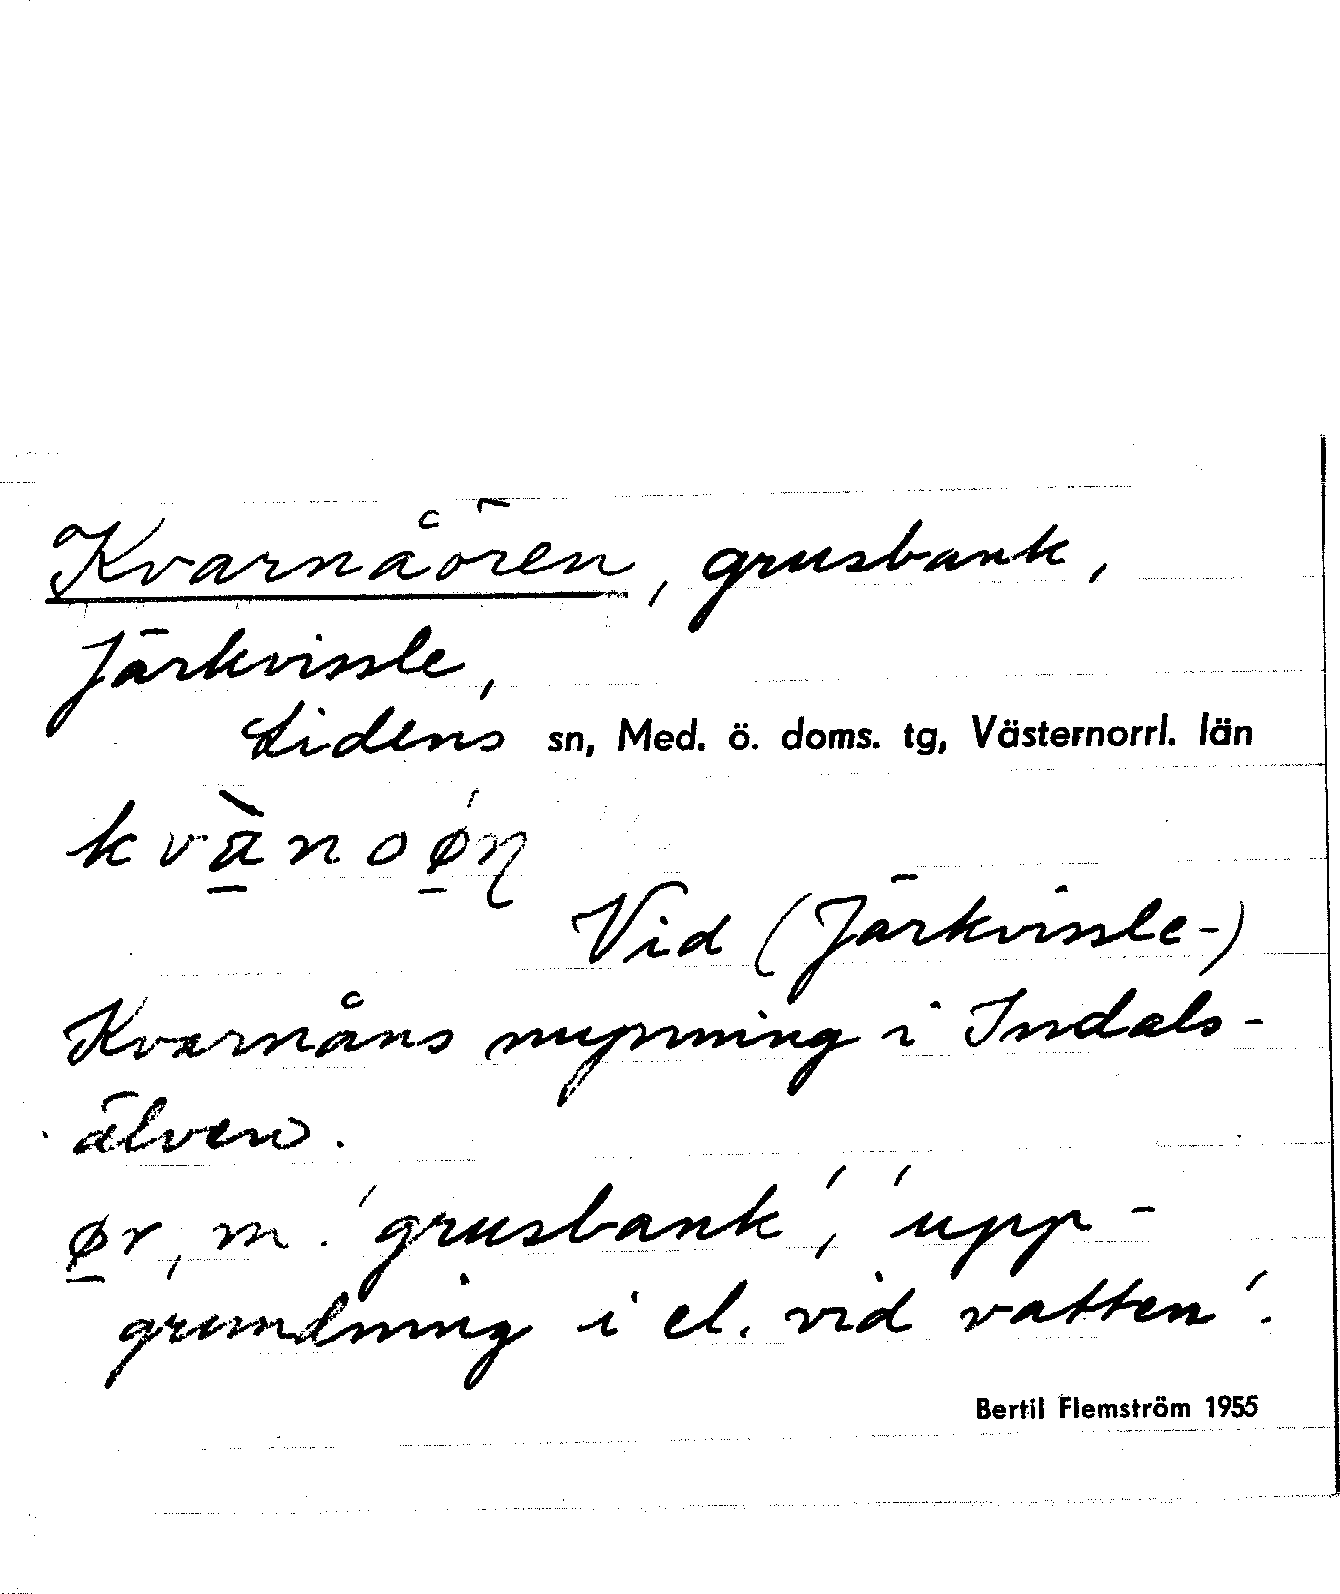 Kvarnåören, grusbank,
Järkvissle,
Lidens sn, Med. ö. doms. tg, Västernorrl. län
kvà̱noǿ̱ɳ
Vid (Järkvissle-)
Kvarnåns mynning i Indals-
älven.
ø̱r, m. 'grusbank', 'upp-
grundning i el. vid vatten'.
Bertil Flemström 1955